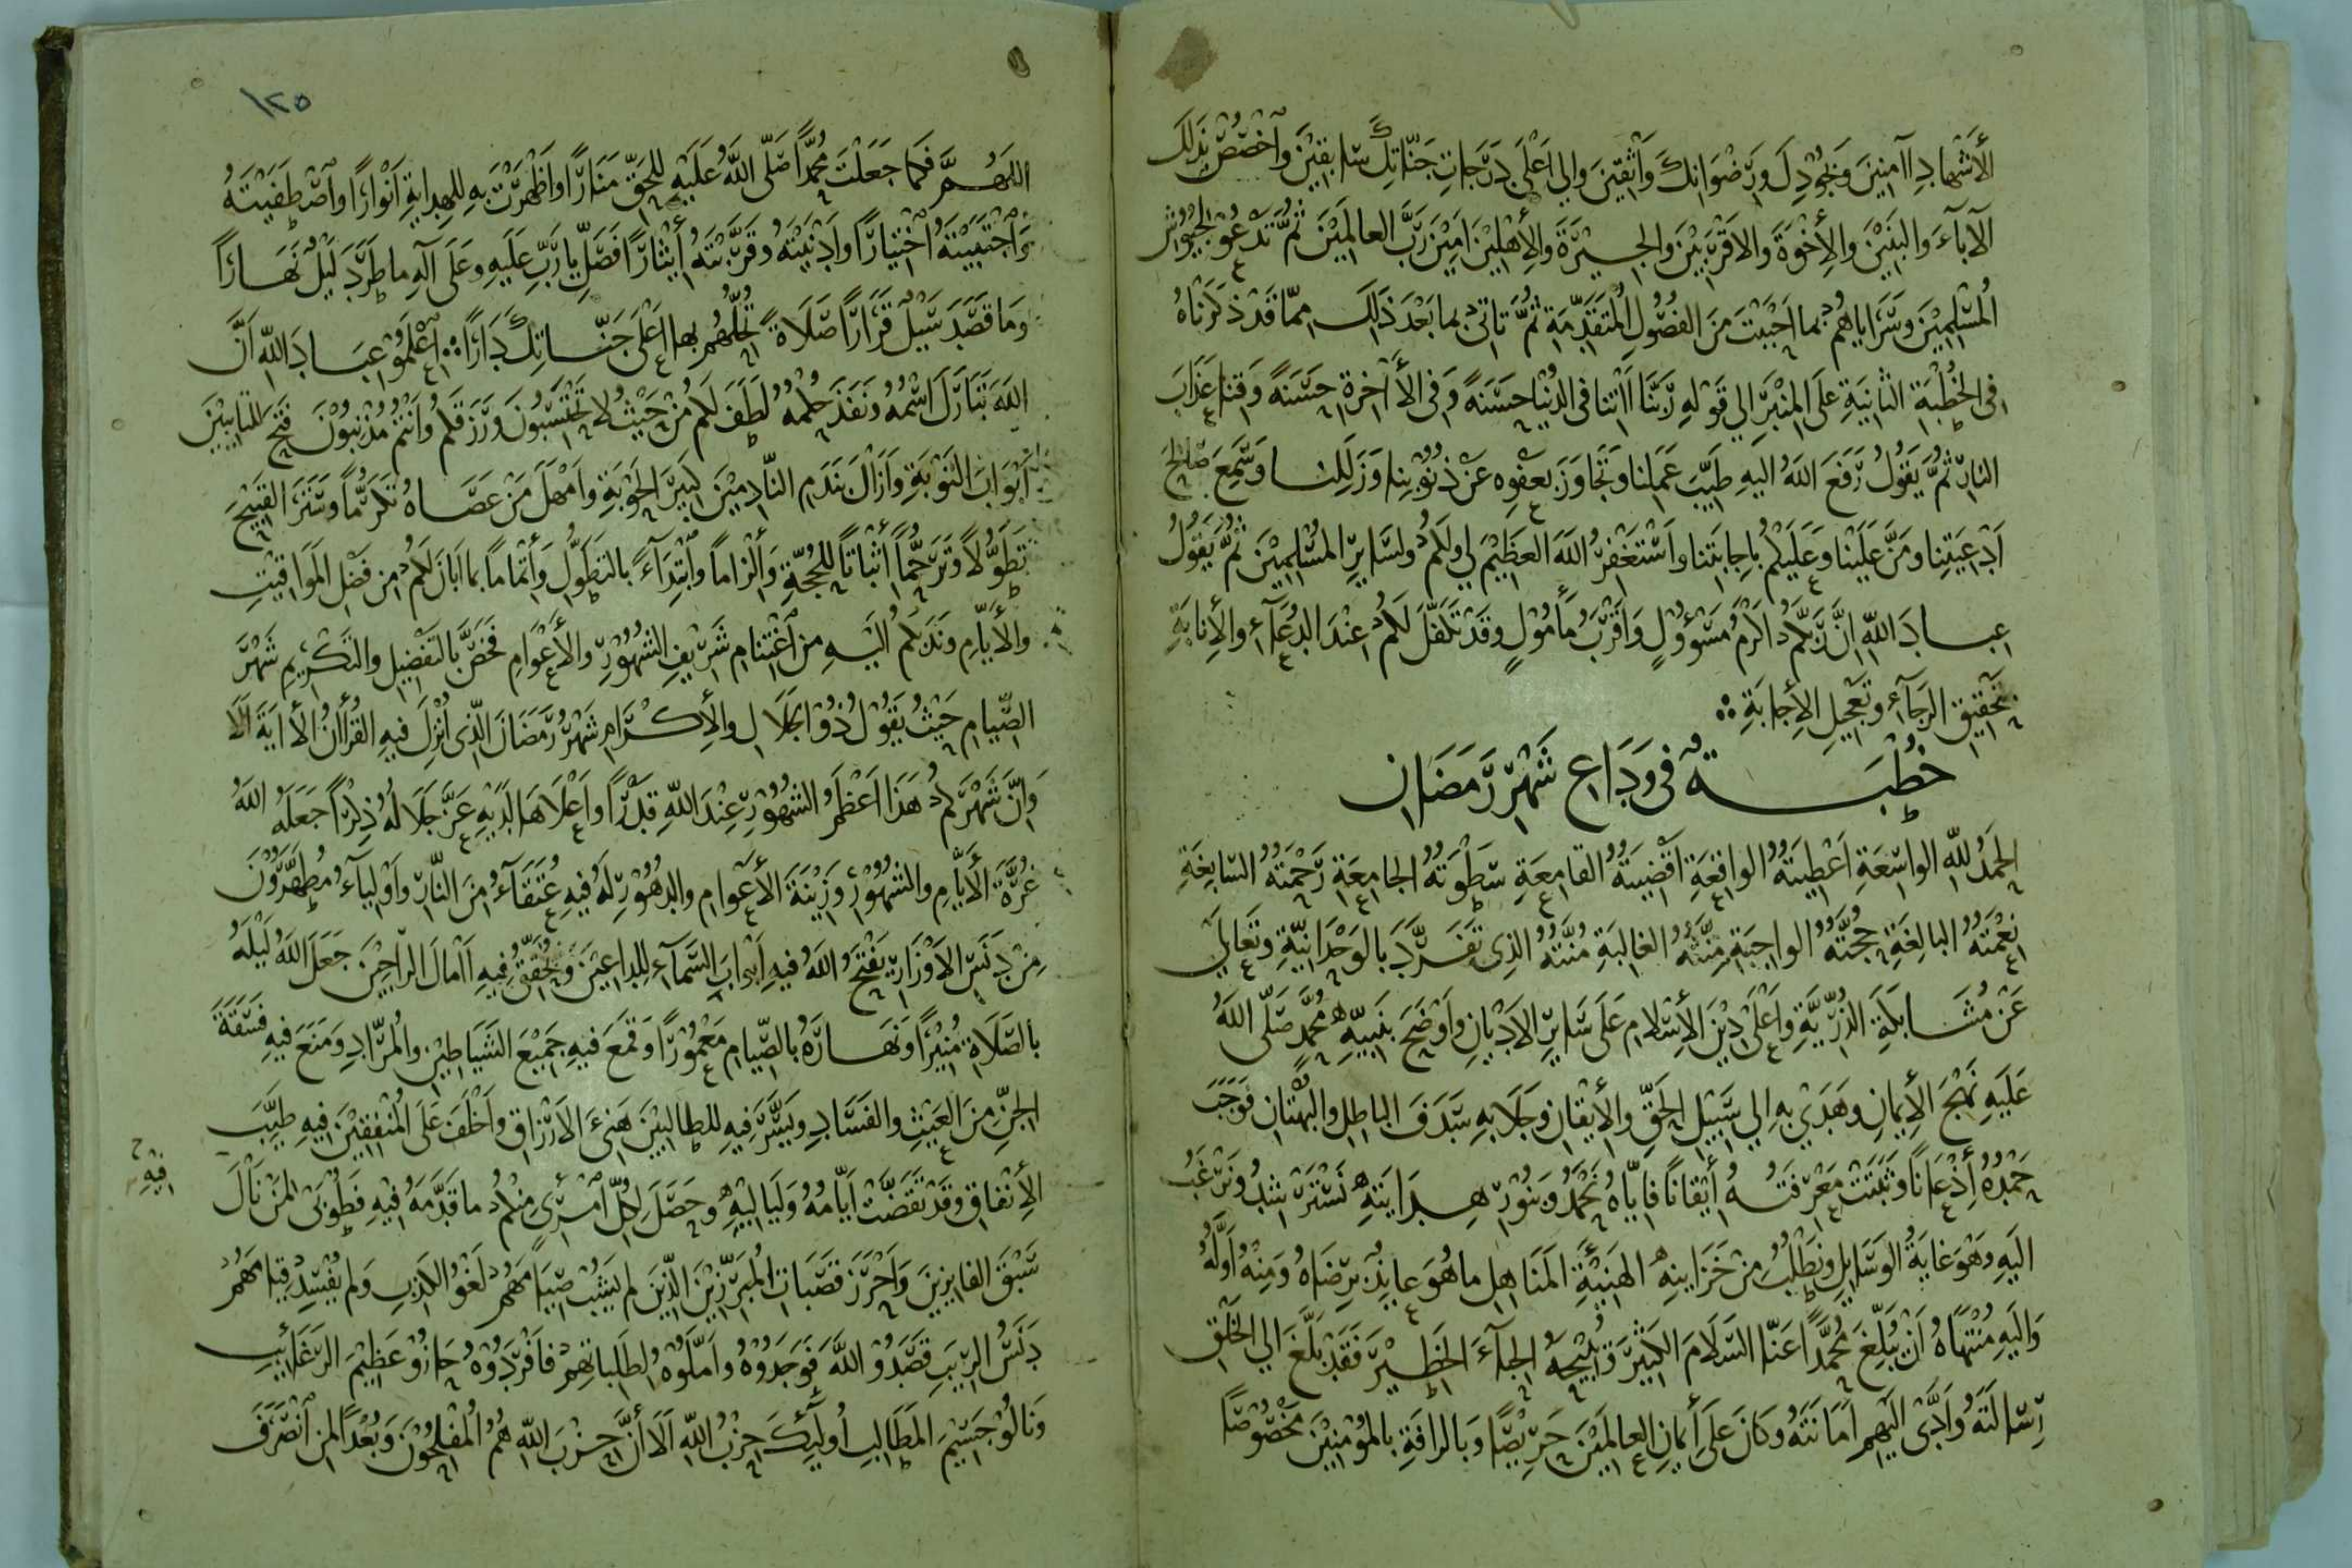 الأَشْهادِ آمِنِينَ وَبِجُوْدِكَ وَرِضْوَانِكَ وَاثِقِينَ وَإلي اَعْلَى دَرَجاتِ جَنَّاتِكَ سَابِقِيْنَ وَاخْصُصْ بِذَلِكَ
الآباءَ وَالبَنِيْنَ والأِخْوَةَ والاَقْرَبِيْنَ والجِيْرَةَ والأَهْلِيْنَ اٰمِيْنَ رَبَّ العالَمِيْنَ ثُمَّ تَدْعُوْ لِجُيُوْشِ
المُسْلِمِيْنَ وَسَرَاياهُمْ بما اَحْبَبْتَ مَنَ الفُصُوْلِ المُتَقَدِّمَةِ ثُمَّ تَاتى بما بَعْدَ ذَلِكَ مِمّا قَدْ ذَكَرْنَاهُ
فى الخُطْبَةِ الثانِيَةِ عَلَى المِنْبَرِ الي قَوْلِهِ رَبَّنَا آتنا فى الدُنْيا حَسَنَةً وَفى الأَاخِرةِ حَسَنَةً وَقِنا عَذَابَ
النارِ ثُمَّ يَقُوْلُ رَفَعَ اللهُ اليهِ طَيِّبَ عَمَلِنا وَتَجَاوَزَ بعَفْوِهِ عَنْ ذُنُوْبِنا وَزَلَلِنا وَسَمِعَ صَالِحَ
اَدْعِيَتِنا ومَنَّ عَلَيْنا وعَلَيْكُمْ باِجابَتِنا واَسْتَغْفِرُ اللهَ العَظِيْمَ لي ولَكُمْ ولسَايِرِ المُسْلِمِيْنَ ثُمَّ يَقُوْلُ
عِبادَ اللّهِ اِنَّ رَبَّكُمْ اكْرَمُ مَسْؤُوْلٍ وَاَقْرَبُ مَأْمُوْلٍ وَقَدْ تَكَفَّلَ لَكُمْ عِنْدَ الدُعَآءِ والأِنابَةِ
بِتَحْقِيْقِ الرَجَآءِ وتَعْجِيْلِ الأِجابَةِ ؞
خُطْبَةٌ فى وَدَاعِ شَهْرِ رَمَضَانِ
الحَمْدُ للّهِ الواسِعَةِ اَعْطِيَتُهُ الواقِعَةِ اَقْضِيَتُهُ القامِعَةِ سَطْوَتُهُ الجامِعَةِ رَحْمَتُهُ السَابِغَةِ
نِعْمَتُهُ البالِغَةِ حُجَّتُهُ الواجِبَةِ مِنَّتُهُ الغالِبَةِ مُنَّتُهُ الذِى تَفَرَّدَ بالوَحْدَانِيّةِ وتَعَالي
عَنْ مُشَاكَلَةِ الذُرِّيَّةِ واَعْلَى دِيْنَ الأِسْلامِ عَلَى سَايِرِ الاَدْيانِ واَوْضَحَ بنَبِيِّهِ مُحَمَّدٍ صَلَّى اللهُ
عَلَيهِ نَهْجَ الأِيمانِ وهَدَي بِهِ الي سَبِيْلِ الحَقِّ والأِيْقانِ وجَلَا بِهِ سَدَفَ الباطِلِ والبُهْتانِ فَوَجَبَ
حَمْدُهُ أِذْعَانًا وَثَبَتَتْ مَعْرِفَتُهُ أِيْقانًا فاِيّاهُ نَحْمَدُ وبنُوْرِ هِدَايَتِهِ نَسْتَرْشِدُ ونَرْغَبُ
اليَهِ وهُوَ غايَةُ الوَسَايِلِ ونَطْلُبُ مِنْ خَزَاينِهِ الهَنِيْئَةِ المَنَاهِلِ ما هُوَ عايِدٌ برِضَاهُ وَمِنْهُ اَوَّلُهُ
وَاليَهِ مُنْتَهَاهُ اَنْ يُبَلِّغَ مُحَمَّدًا عَنّا السَلَامَ الكَثِيْرَ وَيُبِيْحَهُ الحِبَآءَ الخَطِيْرَ فَقَدْ بَلَّغَ الي الخَلْقِ
رِسَالَتَهُ واَدَّى اليَهِمْ اَمانَتَهُ وكَانَ عَلَى أِيمانِ العالَمِيْنَ حَرِيْصًا وَبالرافَةِ بالمُؤْمِنِيْنَ مَخْصُوْصًا
١٢٥
اللهُمَّ فَكَما جَعَلْتَ مُحَمَّدًا صَلّى اللهُ عَلَيْهِ للحَقِّ مَنَارًا واَظْهَرْتَ بِهِ للهِدايَةِ اَنْوَارًا واصْطَفَيْتَهُ
وَاجْتَبَيْتَهُ اخْتِيارًا واَدْنَيْتَهُ وقَرَّبْتَهُ أِيْثارًا فَصَلِّ يا رَبِّ عَلَيهِ وعَلَى آلِهِ ما طَرَدَ لَيْلٌ نَهَارًا
وَما قَصَدَ سَيْلٌ قَرَارًا صَلَاةً تُحِلُّهُمْ بها اَعْلَى جَنَّاتِكَ دَارًا ؞ اِعْلَمُوْا عِبَادَ اللّهِ اَنَّ
اللهَ تَبَارَكَ اسْمُهُ وَنَفَذَ حُكْمُهُ لَطَفَ لَكُمْ مِنْ حَيْثُ لا تَحْتَسِبُونَ وَرَزَقَكُمْ وَاَنْتُمْ مُذْنِبُوْنَ فَتَحَ للتايِبِيْنَ
اَبْوَابَ التَوْبَةِ واَزَالَ بنَدَمِ النّادِمِيْنَ كَبِيْرَ الحَوْبَةِ واَمْهَلَ مَنْ عَصَاهُ تَكَرُّمًا وسَتَرَ القَبِيْحَ
تَطَوُّلًا وتَرَحُّمًا أِثْباتًا للحُجَّةِ وَأِلْزامًا وابْتِدَآءً بالتَطَوُّلِ وَأِتْمامًا بما اَبَانَ لَكُمْ من فَضْلِ المَوَاقِيْتِ
والأَيّامِ ونَدَبَكُمْ اليَهِ مِنِ اغْتِنامِ شَرِيْفِ الشُهُوْرِ والأَعْوَامِ فَخَصَّ بالتَفْضِيْلِ والتَكْرِيْمِ شَهْرَ
الصِّيامِ حَيْثُ يَقُوْلُ ذُوْ الجَلَالِ والأِكْرَامِ شَهْرُ رَمَضَانَ الّذِى اُنْزِلَ فيهِ القُرْآنُ الأايَةَ اَلَا
وَاِنَّ شَهْرَكُمْ هَذَا اَعْظَمُ الشُهُوْرِ عِنْدَ اللّهِ قَدْرًا واَعْلَاهَا لَدَيْهِ عَزَّ جَلَالُهُ ذِكْرًا جَعَلَهُ اللهُ
غُرَّةَ الأَيَّامِ والشُهُوْرِ وَزِيْنَةَ الأَعْوامِ والدُهُوْرِ لَهُ فيهِ عُتَقَآءُ مِنَ النّارِ واَوْلِيآءُ مُطَهَّرُوْنَ
مِنْ دَنَسِ الاَوْزَارِ يَفْتَحُ اللهُ فيهِ اَبْوابَ السَّمآءِ للدَاعِيْنَ وَيُحَقِّقُ فِيهِ آمَالَ الرَّاجِيْنَ جَعَلَ اللهُ لَيْلَهُ
بالصَّلَاةِ مُنِيْرًا وَنَهَارَهُ بالصِّيامِ مَعْمُوْرًا وَقَمَعَ فيهِ جَمِيْعَ الشَيَاطِيْنِ والمُرّادِ ومَنَعَ فيهِ فَسَقَةَ
الجِنِّ مِنَ العَيْثِ والفَسَادِ ويَسَّرَ فيهِ للطالِبِيْنَ هَنِىءَ الاَرْزَاقِ واَخْلَفَ عَلَى المُنْفِقِيْنَ فيهِ طَيِّبَ
الأِنْفاقِ وقَدْ تَقَضَّتْ اَيّامُهُ وَلَيَالِيْهِ وحَصَلَ لِكُلِّ امْرِىءٍ مِنْكُمْ ما قَدَّمَهُ فِيْهِ فَطُوْبَى لمَنْ نَالَ
فِيْهِ
سَبْقَ الفايِزِينَ وَاَحْرَزَ قَصَبَاتِ المُبَرِّزِيْنَ الّذِينَ لم يَشُبْ صِيَامَهُمْ لَغْوُ الكَذِبِ وَلم يُفْسِدْ قِيَامَهُمْ
دَنَسُ الرِيَبِ قَصَدُوْا اللهَ فَوَجَدُوْهُ واَمَّلُوْهُ لطَلِباتِهِمْ فاَفْرَدُوْهُ حَازُوْا عَظِيْمَ الرَغَائِبِ
وَنَالُوْا جَسِيْمَ المَطَالِبِ اُولَئِكَ حِزْبُ اللّهِ اَلَا أِنَّ حِزْبَ اللّهِ هُمُ المُفْلِحُوْنَ وَبُعْدًا لمنِ انْصَرَفَ